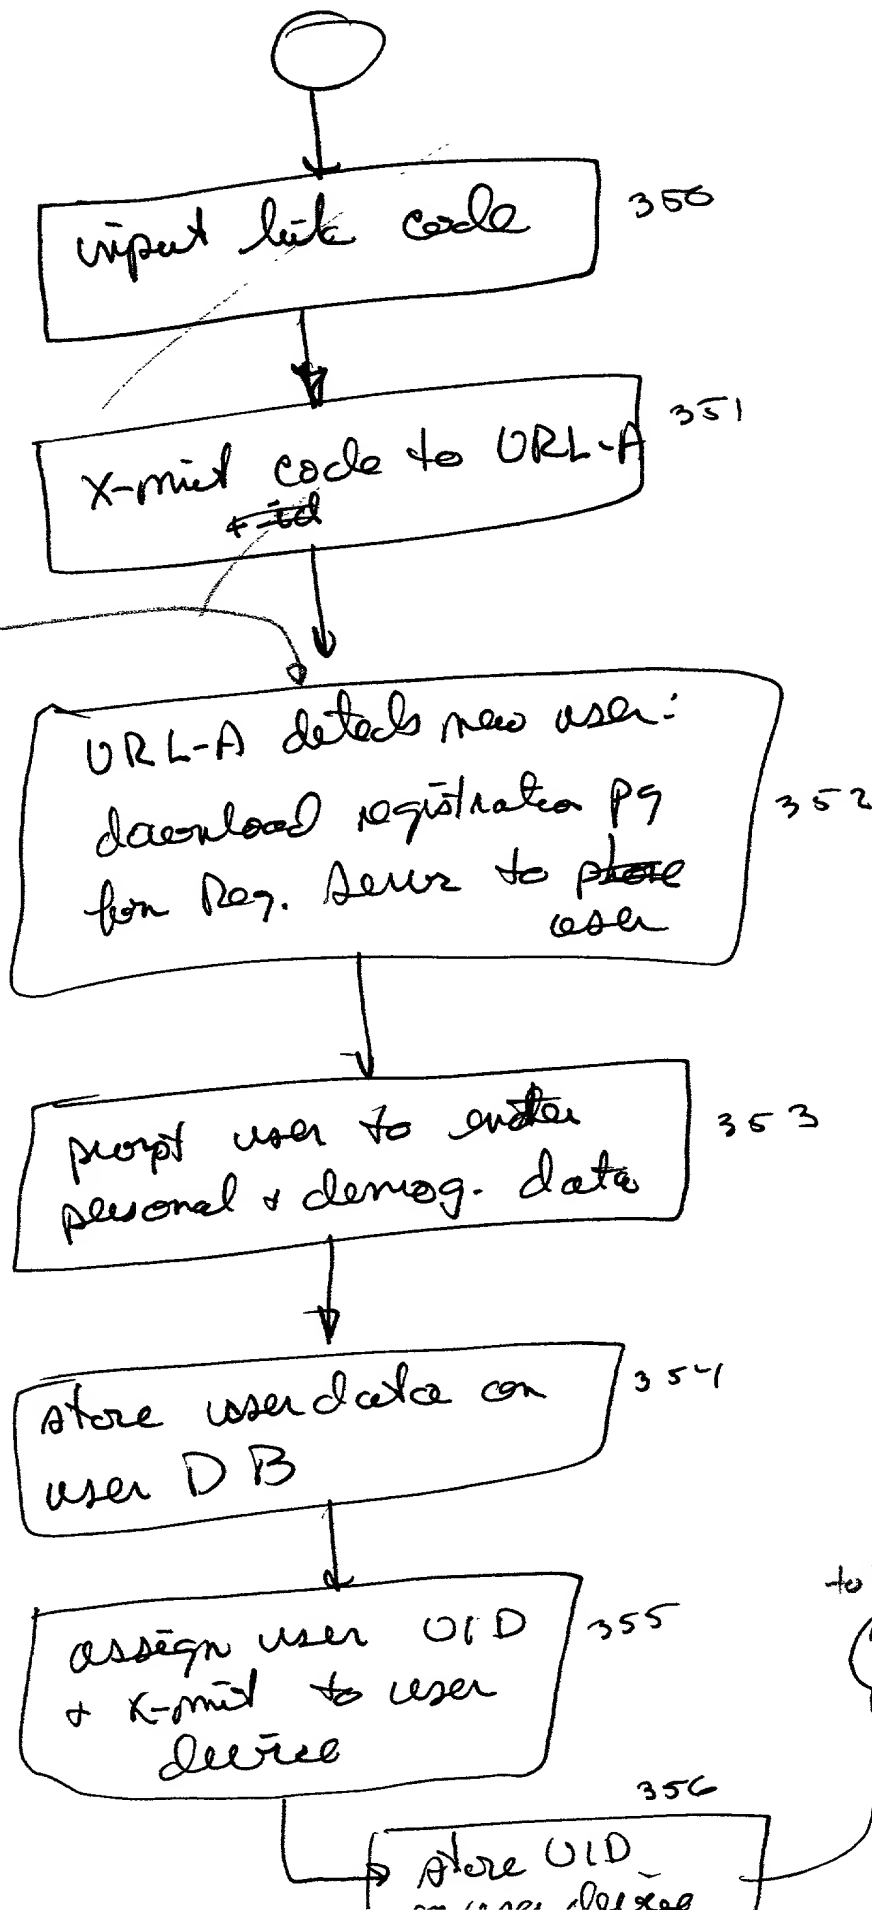 input link code
350
x-mit code to URL-A
351
+ id
URL-A detects new user:
download registration pg
352
from Reg. Server to phone
user
prompt user to enter
353
personal + demog. data
store user data on
354
user DB
assign user UID
355
+ x-mit to user
device
to
356
store UID
on user device